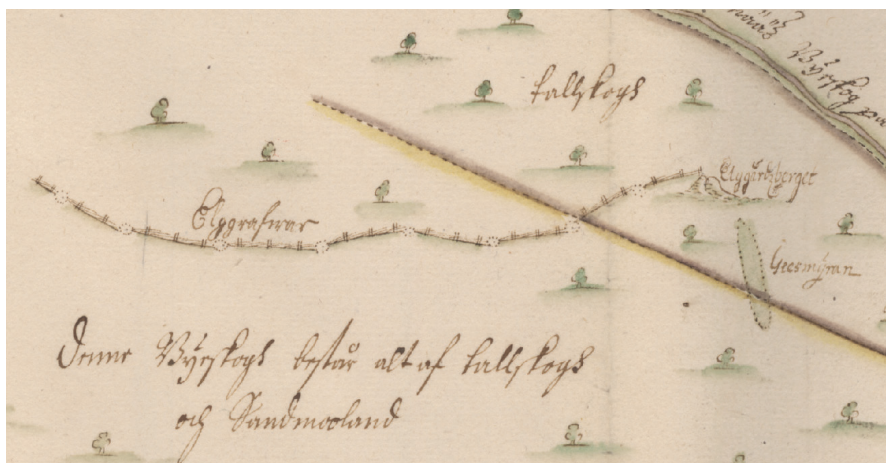 Byskog
tallskogh
Elggårdzberget
Elggrafwar
Geesmÿran
denne Bÿeskogh består alt af tallskogh
och Sandmooland